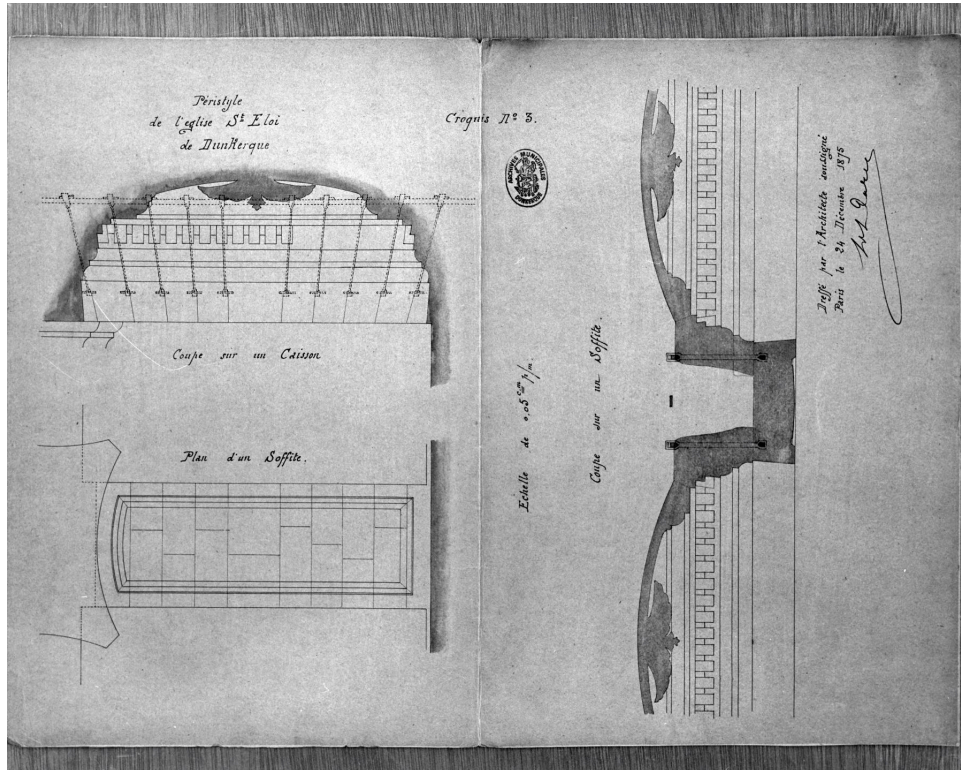 Péristyle
de l'eglise S^t Eloi
de Dunkerque
Croquis N° 3.
ARCHIVES MUNICIPALES
DUNKERQUE
Coupe sur un Caisson
Plan d'un Soffite.
Echelle de 0,05^c.m p/m.
Coupe sur un Soffite.
Dressé par l'Architecte soussigné
Paris le 24 Décembre 1875